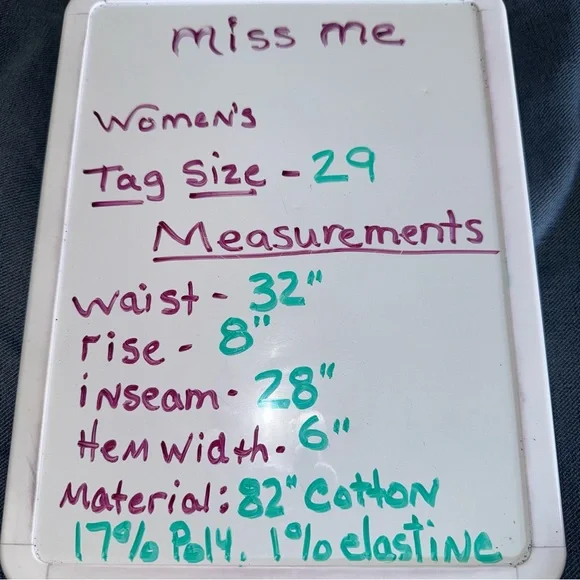 miss me
Women's
Tag Size - 29
Measurements
waist - 32"
rise - 8"
inseam - 28"
Hem Width - 6"
Material: 82" Cotton
17% Poly. 1% elastine